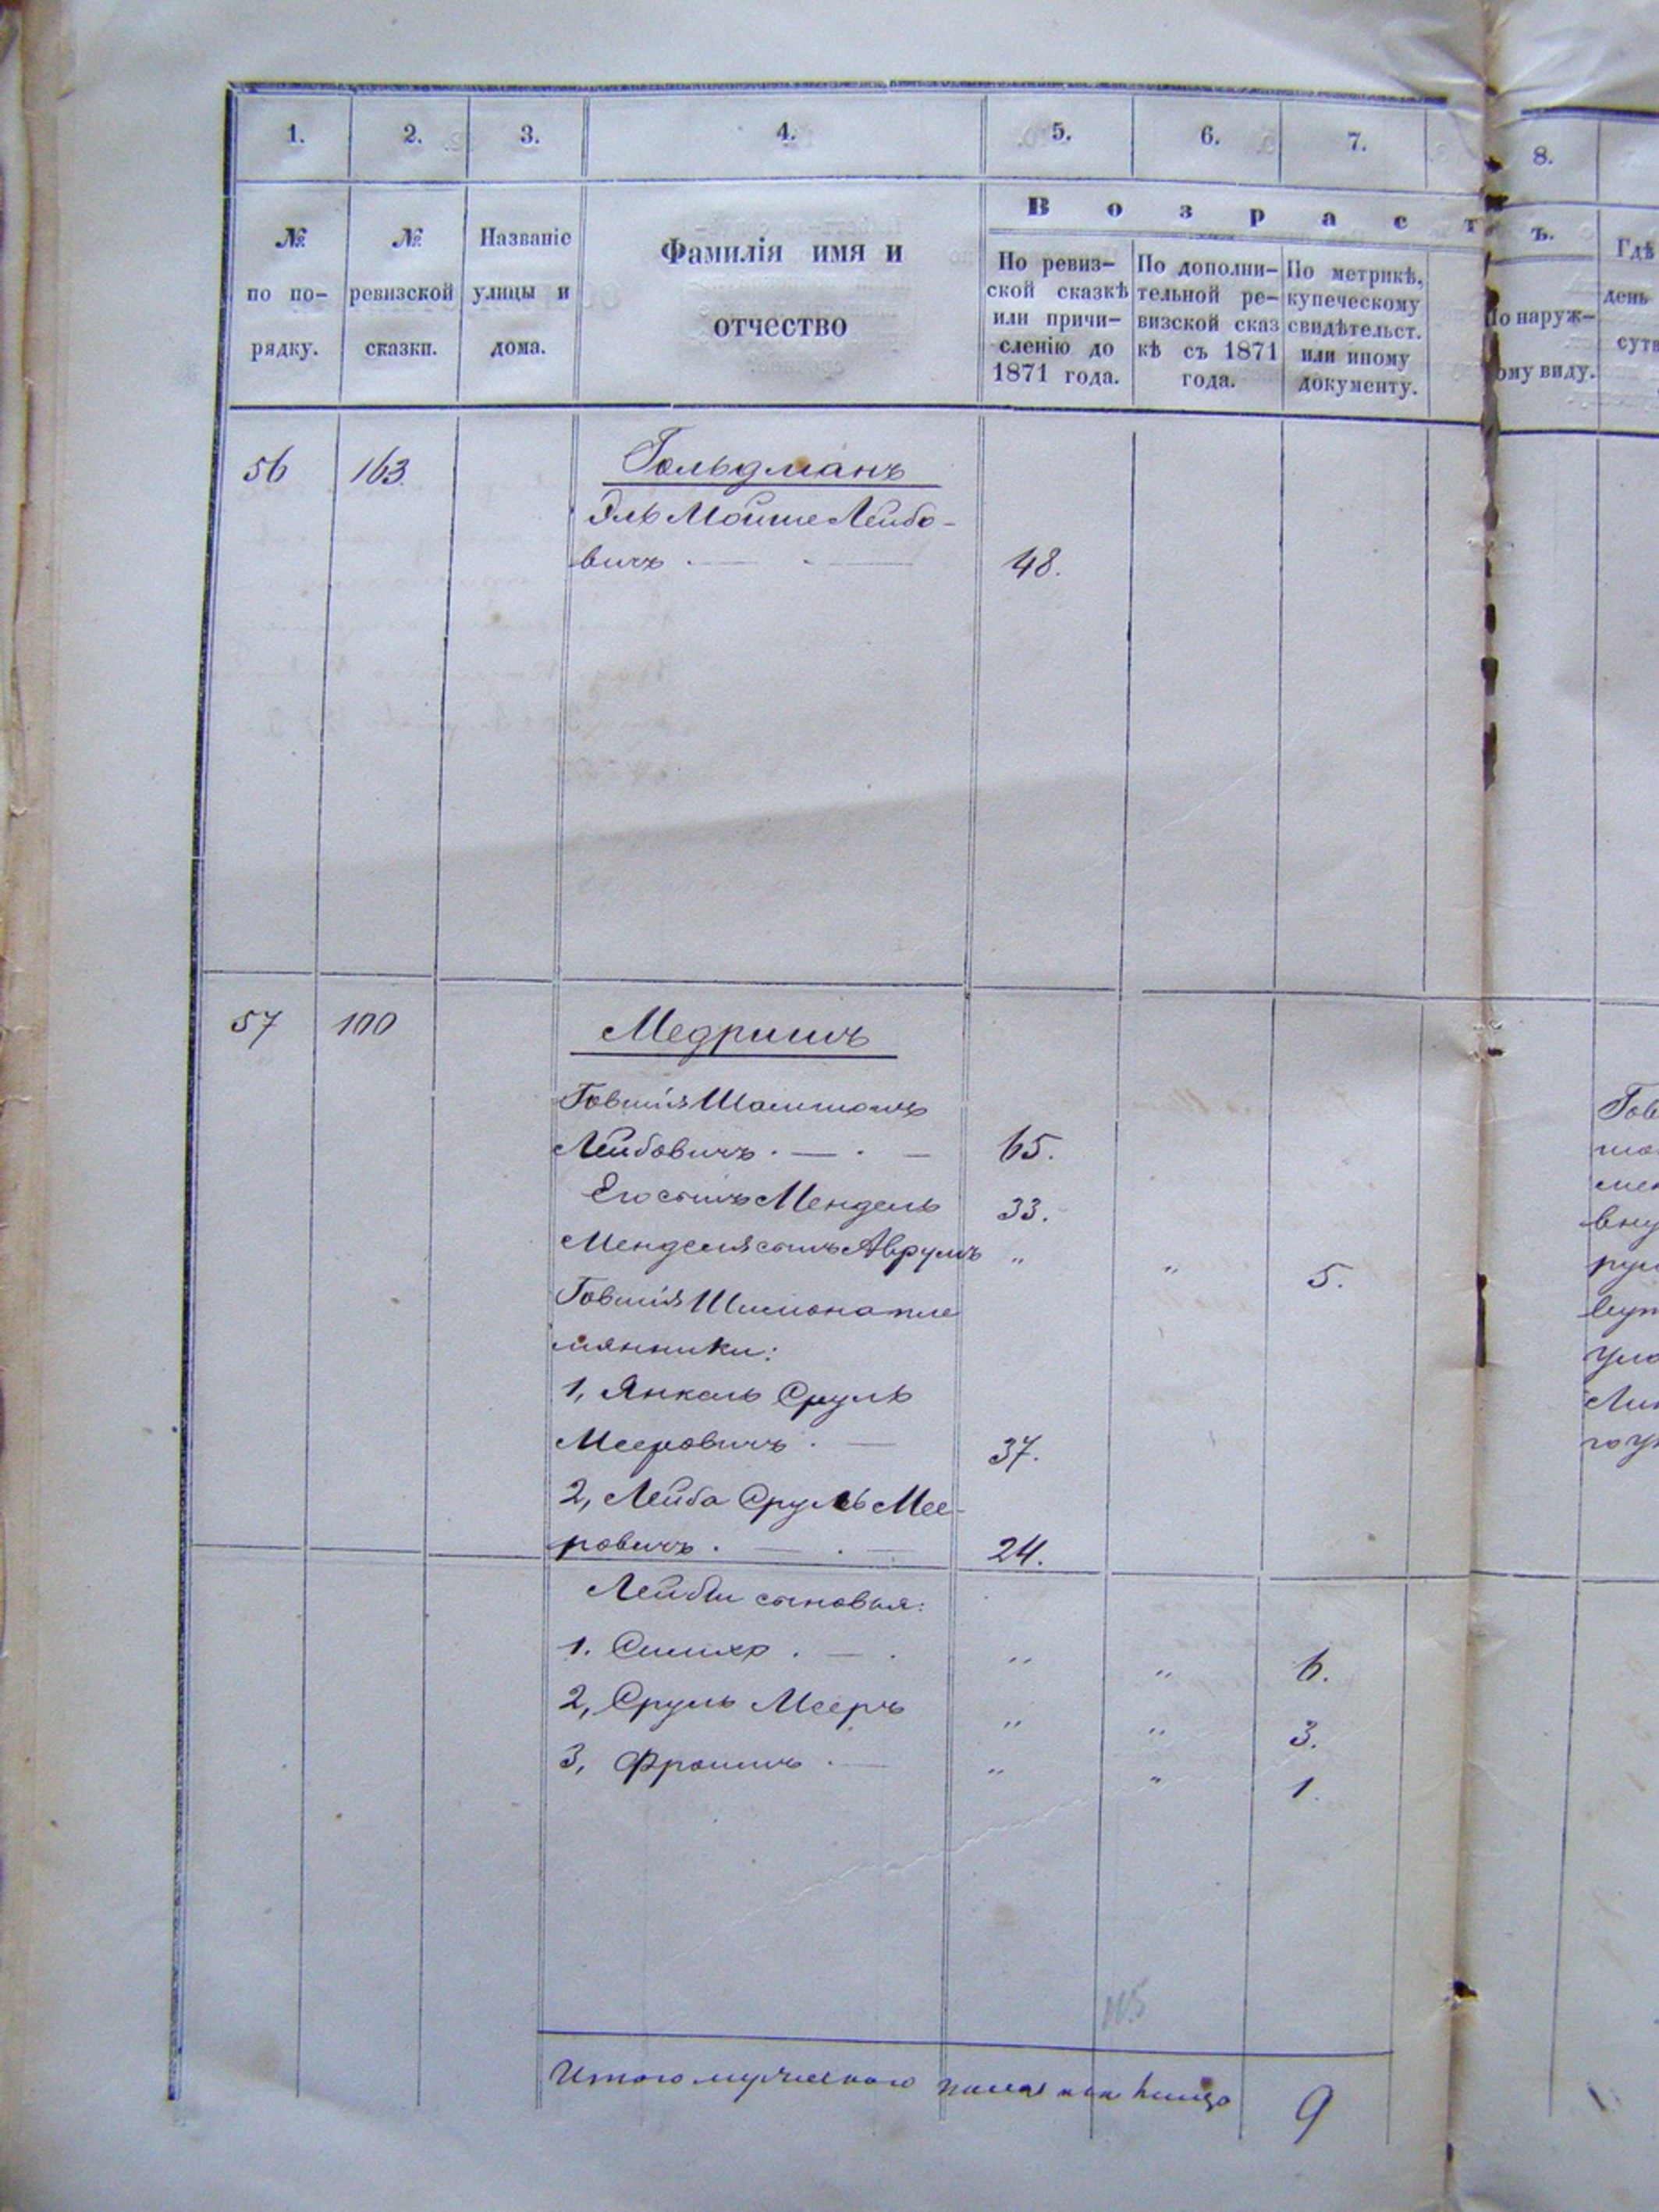 1. 2. 3. 4. 5. 6. 7. 8.
В о з р а с т ъ.
№ по по-рядку.
№ ревизской сказки.
Названіе улицы и дома.
Фамилія имя и
отчество
По ревиз-
ской сказкѣ
или причи-
сленію до
1871 года.
По дополни-
тельной ре-
визской сказ
кѣ съ 1871
года.
По метрикѣ,
купеческому
свидѣтельст.
или иному
документу.
По наруж-
ому виду.
Гдѣ
день
сутв
56 163 Гольдманъ
Эль Мойше Лейбо-
вичъ 48.
57 100 Медришъ
Говшія Шолимонъ
Лейбовичъ 65.
Его сынъ Мендель 33.
Менделя сынъ Аврумъ " " 5.
Говшія Шимона пле
мянники:
1, Янкель Сруль
Мееровичъ 37.
2, Лейба Сруль Мее-
ровичъ 24.
Лейбы сыновья:
1. Симхо " " 6.
2, Сруль Мееръ " " 3.
3, Фроимъ " " 1.
115
Итого мужескаго пола на лицо 9